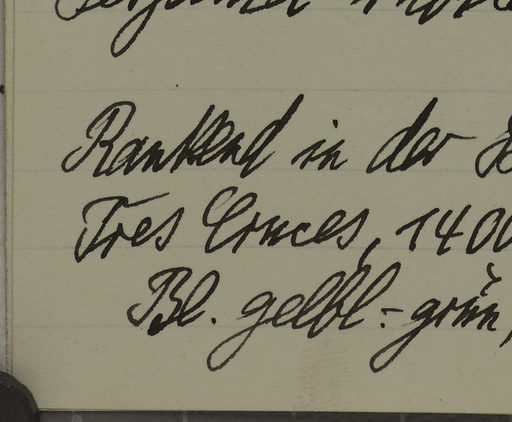 Rankend in der
Tres Cruces, 1400
Bl. gelbl.-grün,